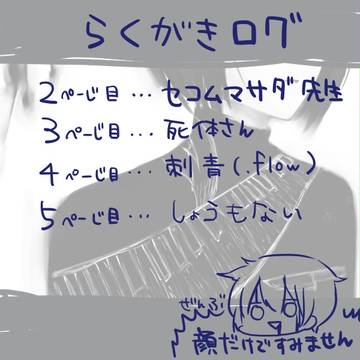 らくがきログ
2ページ目…セコムマサダ先生
3ページ目…死体さん
4ページ目…刺青(.flow)
5ページ目…しょうもない
ぜんぶ
顔だけですみません